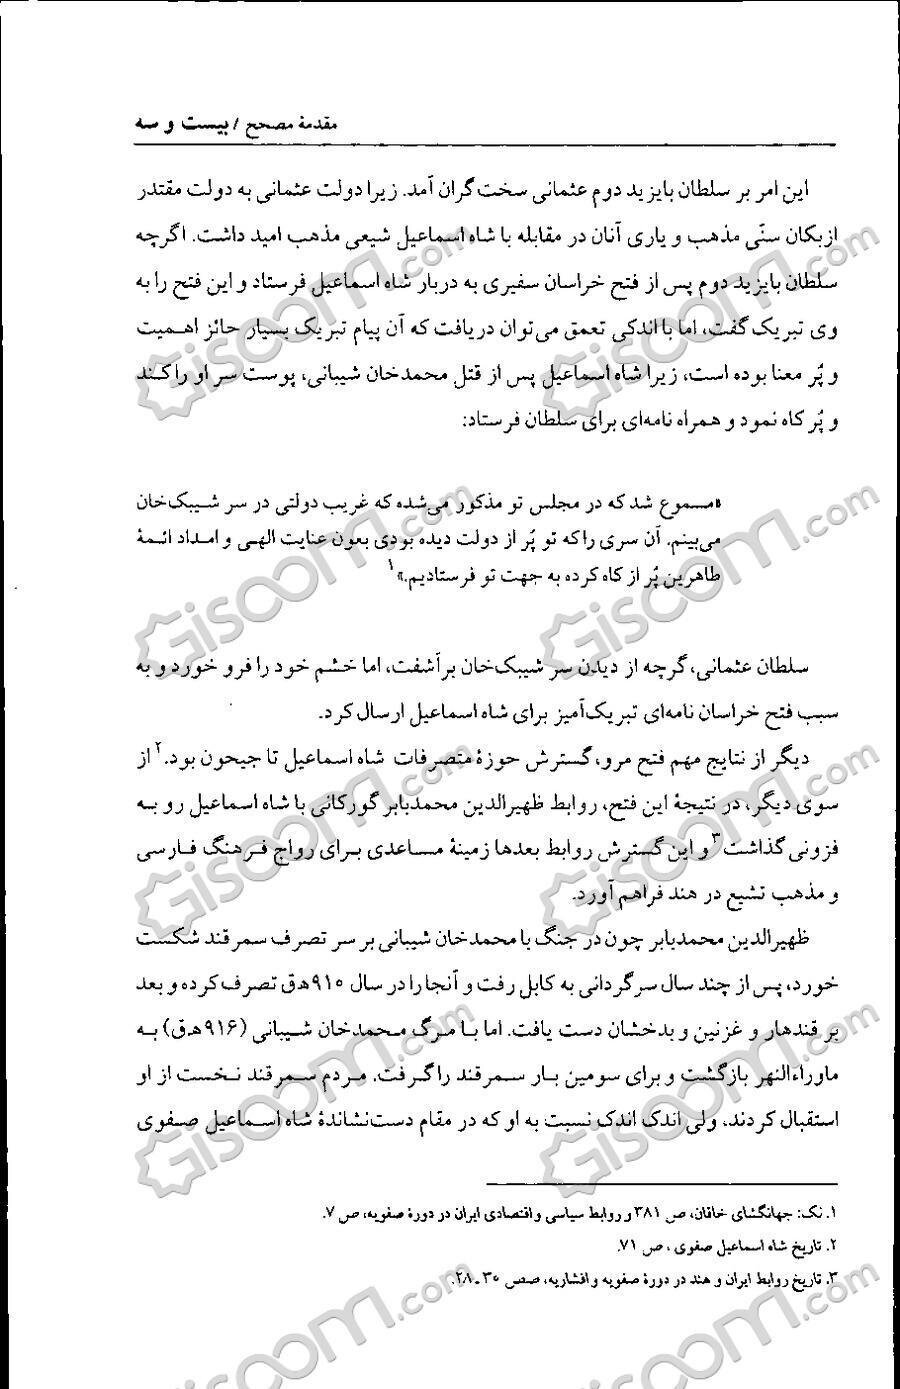 مقدمهٔ مصحح / بیست و سه
این امر بر سلطان بایزید دوم عثمانی سخت گران آمد. زیرا دولت عثمانی به دولت مقتدر
ازبکان سنّی مذهب و یاری آنان در مقابله با شاه اسماعیل شیعی مذهب امید داشت. اگرچه
سلطان بایزید دوم پس از فتح خراسان سفیری به دربار شاه اسماعیل فرستاد و این فتح را به
وی تبریک گفت، اما با اندکی تعمق می‌توان دریافت که آن پیام تبریک بسیار حائز اهمیت
و پُر معنا بوده است، زیرا شاه اسماعیل پس از قتل محمدخان شیبانی، پوست سر او را کند
و پُر کاه نمود و همراه نامه‌ای برای سلطان فرستاد:
«مسموع شد که در مجلس تو مذکور می‌شده که غریب دولتی در سر شیبک‌خان
می‌بینم. آن سری را که تو پُر از دولت دیده بودی بعون عنایت الهی و امداد ائمهٔ
طاهرین پُر از کاه کرده به جهت تو فرستادیم.»۱
سلطان عثمانی، گرچه از دیدن سر شیبک‌خان برآشفت، اما خشم خود را فرو خورد و به
سبب فتح خراسان نامه‌ای تبریک‌آمیز برای شاه اسماعیل ارسال کرد.
دیگر از نتایج مهم فتح مرو، گسترش حوزهٔ متصرفات شاه اسماعیل تا جیحون بود.۲ از
سوی دیگر، در نتیجهٔ این فتح، روابط ظهیرالدین محمدبابر گورکانی با شاه اسماعیل رو به
فزونی گذاشت۳ و این گسترش روابط بعدها زمینهٔ مساعدی برای رواج فرهنگ فارسی
و مذهب تشیع در هند فراهم آورد.
ظهیرالدین محمدبابر چون در جنگ با محمدخان شیبانی بر سر تصرف سمرقند شکست
خورد، پس از چند سال سرگردانی به کابل رفت و آنجا را در سال ۹۱۰ه‍.ق تصرف کرده و بعد
بر قندهار و غزنین و بدخشان دست یافت. اما با مرگ محمدخان شیبانی (۹۱۶ه‍.ق) به
ماوراءالنهر بازگشت و برای سومین بار سمرقند را گرفت. مردم سمرقند نخست از او
استقبال کردند. ولی اندک اندک نسبت به او که در مقام دست‌نشاندهٔ شاه اسماعیل صفوی
۱. نک: جهانگشای خاقان، ص ۳۸۱ و روابط سیاسی و اقتصادی ایران در دورهٔ صفویه، ص ۷.
۲. تاریخ شاه اسماعیل صفوی، ص ۷۱.
۳. تاریخ روابط ایران و هند در دورهٔ صفویه و افشاریه، صص ۳۰ ـ ۲۸.
Giscoom.com
Giscoom.com
Giscoom.com
Giscoom.com
Giscoom.com
Giscoom.com
Giscoom.com
Giscoom.com
Giscoom.com
Giscoom.com